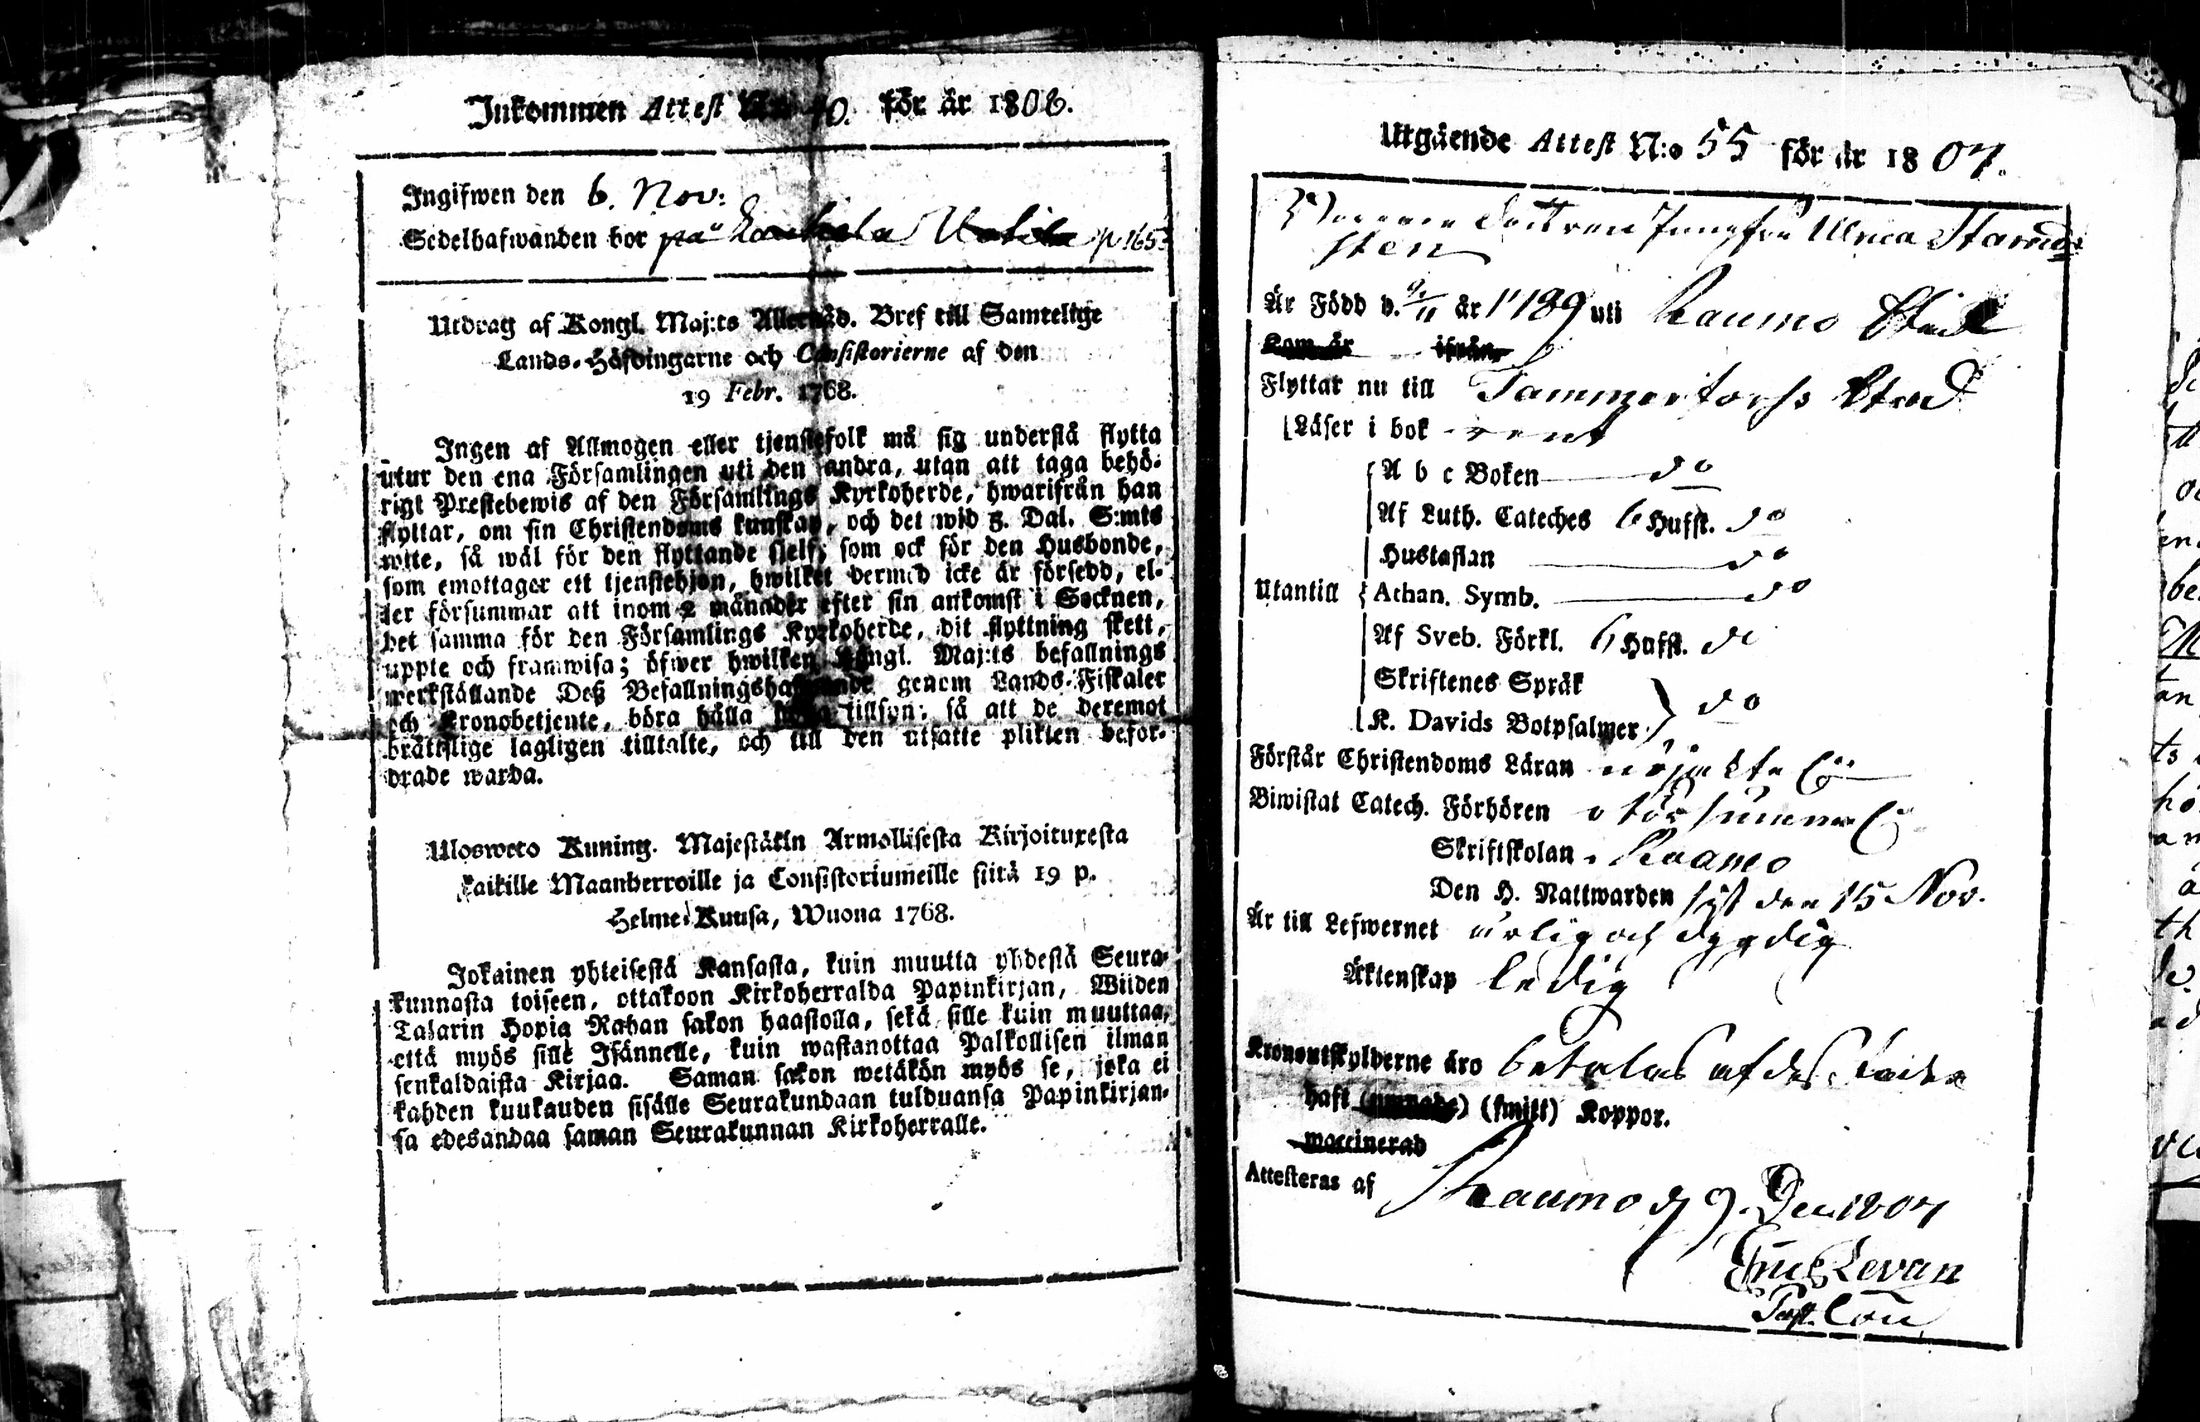 Inkommen Attest N:o 40. för år 1808.
Ingifwen den 6. Nov:
Sedelhafwanden bor på p 165
Utdrag af Kongl. Maj:ts Allernåd. Bref till Samtelige
Lands-Höfdingarne och Consistorierne af den
19 Febr. 1768.
Ingen af Allmogen eller tjenstefolk må sig understå flytta
utur den ena Församlingen uti den andra, utan att taga behö-
rigt Prestebewis af den Församlings Kyrkoherde, hwarifrån han
flyttar, om sin Christendoms kunskap, och det wid 5. Dal. S:mts
wite, så wäl för den flyttande sjelf, som ock för den Husbonde,
som emottager ett tjenstehjon, hwilket dermed icke är försedd, el-
ler försummar att inom 2 månader efter sin ankomst i Socknen,
det samma för den Församlings Kyrkoherde, dit flyttning skett,
uppte och framwisa; öfwer hwilken Kongl. Maj:ts befallnings
werkställande Deß Befallningshafwande genom Lands-Fiskaler
och Kronobetjente, böra hålla noga tillsyn; så att de deremot
bråttslige lagligen tilltalte, och till den utsatte plikten befor-
drade warda.
Ulosweto Kuning. Majestätin Armollisesta Kirjoituxesta
kaikille Maanherroille ja Consistoriumeille siitä 19 p.
Helme-Kuusa, Wuona 1768.
Jokainen yhteisestä Kansasta, kuin muutta yhdestä Seura-
kunnasta toiseen, ottakoon Kirkoherralda Papinkirjan, Wiiden
Talarin Hopia Rahan sakon haastolla, sekä sille kuin muuttaa,
että myös sille Isännelle, kuin wastanottaa Palkollisen ilman
senkaldaista Kirjaa. Saman sakon wetäkön myös se, joka ei
kahden kuukauden sisälle Seurakundaan tulduansa Papinkirjan-
sa edesandaa saman Seurakunnan Kirkoherralle.
Utgående Attest N:o 55 för år 1807.
Jungfru Ulrica
sten
Är Född d. 9/11 år 1789 uti Raumo Stad
Kom år ifrån
Flyttar nu till Tammerfors Stad
Läser i bok rent
A b c Boken do
Af Luth. Cateches 6 Hufst. do
Hustaflan do
Utantill Athan. Symb. do
Af Sveb. Förkl. 6 Hufst. do
Skriftenes Språk
K. Davids Botpsalmer do
Förstår Christendoms Läran
Biwistat Catech. Förhören
Skriftskolan Raumo
Den H. Nattwarden sist den 15 Nov.
Är till Lefwernet ärlig och dygdig
Äktenskap ledig
Kronoutskylderne äro betalas af
haft (ympade) (smitt) Koppor.
waccinerad
Attesteras af Raumo d 9. Dec 1807
Levan
Past. Loci